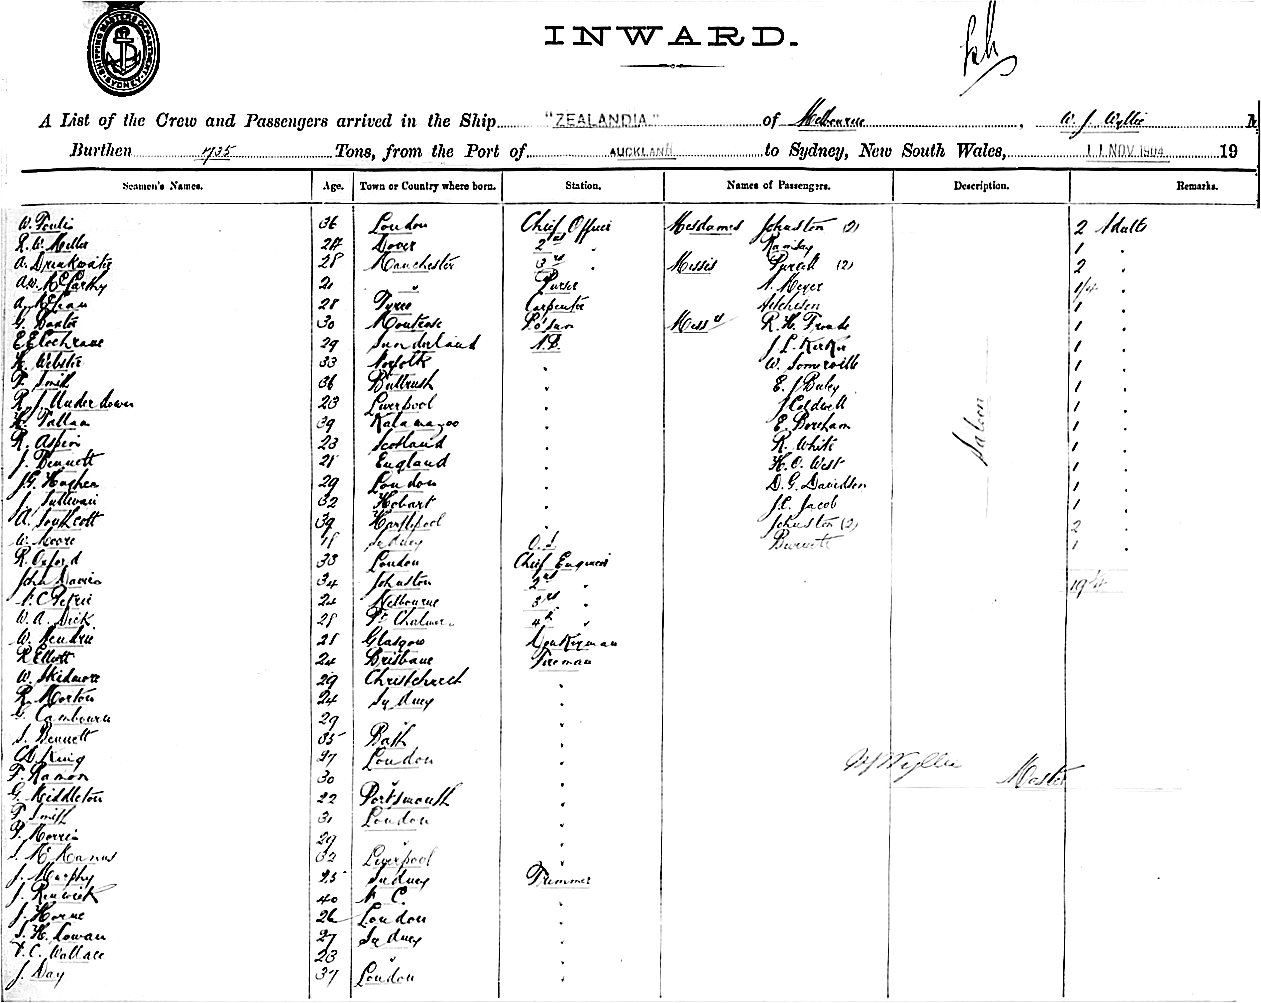 SHIPPING MASTERS DEPARTMENT SYDNEY
INWARD.
A List of the Crew and Passengers arrived in the Ship "ZEALANDIA" of Melbourne, W. J. Wyllie M
Burthen 1735 Tons, from the Port of AUCKLAND to Sydney, New South Wales, 11 NOV. 1904 19
Seamen's Names. Age. Town or Country where born. Station. Names of Passengers. Description. Remarks.
36 London Chief Officer Mesdames Johnston (2) 2 Adults
R. W. Miller 24 Dover 2nd " Ramsay 1 "
A. Drinkwater 28 Manchester 3rd " Misses (2) 2 "
McCarthy 21 " Purser Meyer 1/4 "
A. McLean 28 Carpenter Aitcheson 1 "
G. Baxter 30 Montrose Bo'sun Messrs R. H. 1 "
E E Cochrane 29 Sunderland A.B. J. L. 1 "
H. Webster 33 Norfolk " W. Somerville 1 "
F. Smith 36 " E. J. 1 "
R. J. Underdown 23 Liverpool " J Coldwell 1 "
H. Tallan 39 Kalamazoo " E. Boreham 1 "
R. Aspin 23 Scotland " R. White 1 "
J. Bennett 21 England " H. O. West 1 "
J. G. Hughes 29 London " D. G. Davidson 1 "
J. Sullivan 32 Hobart " J. C. Jacob 1 "
A. Southcott 39 Hartlepool " Johnston (2) 2 "
W. Moore 18 Sydney O.S. Burnett 1 "
R. Oxford 33 London Chief Engineer
John Davies 34 Johnston 2nd " 19 1/4
Petrie 24 Melbourne 3rd "
W. A. Dick 28 Pt Chalmers 4th "
W. Hendrie 28 Glasgow Donkeyman
R Elliott 24 Brisbane Fireman
W. Skidmore 29 Christchurch "
R. Morton 24 Sydney "
G. Cambourn 29 " "
S. Bennett 35 Bath "
King 27 London "
F. Ramon 30 " "
G. Middleton 22 Portsmouth "
F. Smith 31 London "
P. Morris 29 " "
McManus 32 Liverpool "
J. Murphy 25 Sydney Trimmer
J. Renwick 40 N. C. "
J. Horne 26 London "
S. H. Cowan 27 Sydney "
C. Wallace 23 " "
J. Day 37 London "
Saloon
W J Wyllie Master